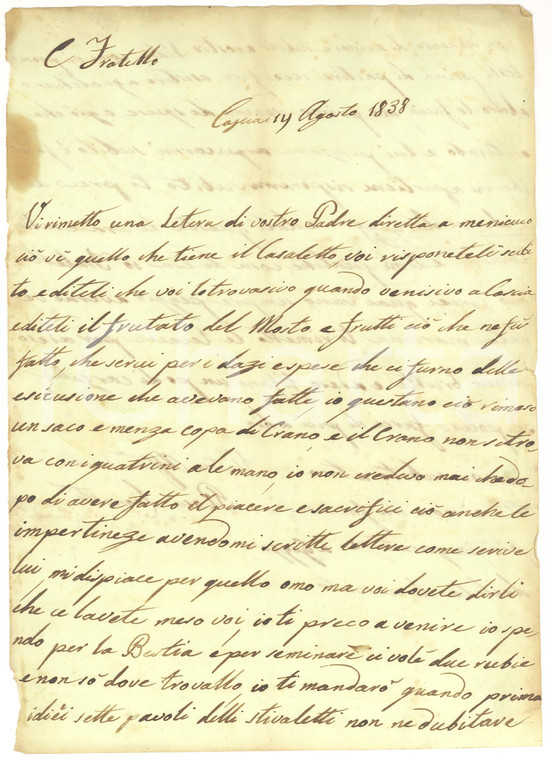 C Fratello
Cascia 14 Agosto 1838
Vi rimetto una Letera di vostro Padre diretta a menicuccio
ciò vi quello che tiene il Casaletto voi risponeteli subi-
to, e diteli che voi lo trovasivo quando venisivo a Cascia
e diteli il frutato del Mosto e frutti ciò che ne fù
fatto, che servi per i dazi e spese che ci furno delle
esicusione che avevano fatte io questano ciò rimaso
un saco e menza copa di Crano, e il Crano non si tro-
va con i quatrini a le mano, io non credevo mai che do-
po di avere fatto il piacere e sacrifici ciò anche le
impertineze avendomi scritte lettere come scrive
lui mi dispiace per quello omo ma voi dovete dirli
che ce lavete meso voi, io ti preco a venire io spe-
ndo per la Bestia é per seminare ci vole due rubie
e non sò dove trovallo io ti mandarò quando prima
i dieci sette pavoli delli stivaletti non ne dubitare